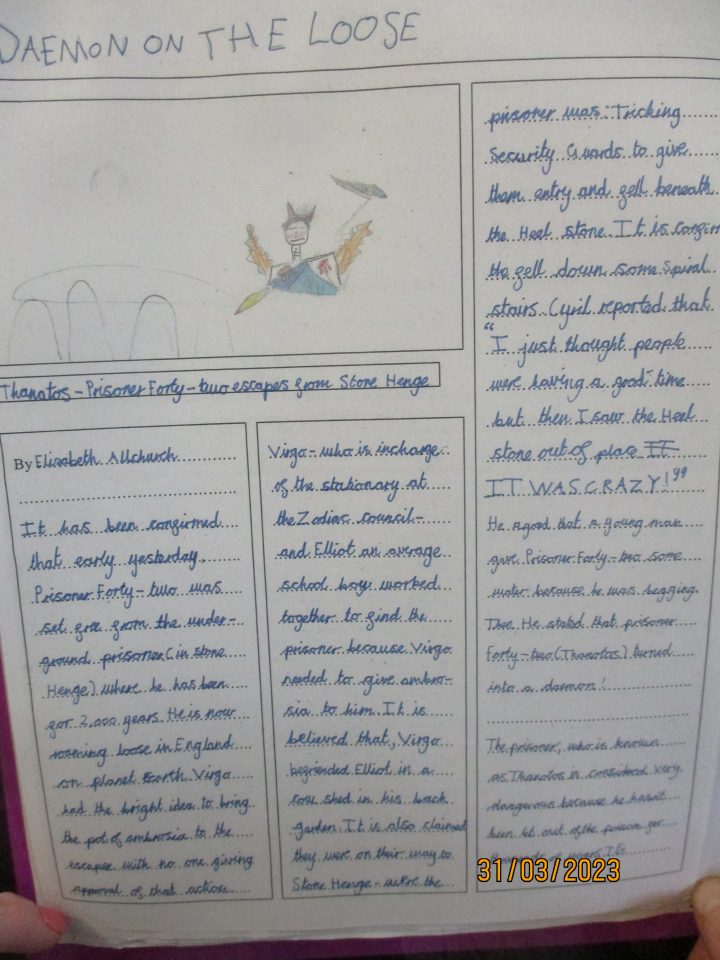 DAEMON ON THE LOOSE
Thanatos - Prisoner Forty - two escapes from Stone Henge
By Elizabeth Allchurch
It has been confirmed
that early yesterday
Prisoner Forty - two was
set free from the under-
ground prisoner (in stone
Henge) where he has been
for 2,000 years. He is now
roaming loose in England
on planet Earth. Virgo
had the bright idea to bring
the pot of ambrosia to the
escapee with no one giving
approval of that action.
Virgo - who is incharge
of the stationary at
the Zodiac council -
and Elliot an average
school boy worked
together to find the
prisoner because Virgo
needed to give ambro-
sia to him. It is
believed that, Virgo
befriended Elliot in a
cow shed in his back
garden. It is also claimed
they were on their way to
Stone Henge - were the
prisoner was: Tricking
Security Guards to give
them entry and fell beneath
the Heel stone. It is confirm
the fell down some Spiral
stairs. Cyril reported that
"I just thought people
were having a good-time
but then I saw the Heel
stone out of place It
IT WAS CRAZY!"
He a good that a young man
gave Prisoner Forty - two some
water because he was begging.
Then He stated that prisoner
Forty - two (Thanatos) turned
into a daemon!
The prisoner, who is known
as Thanatos is considered very
dangerous because he hasn't
been let out of the prison for
thousands of years. It's
31/03/2023